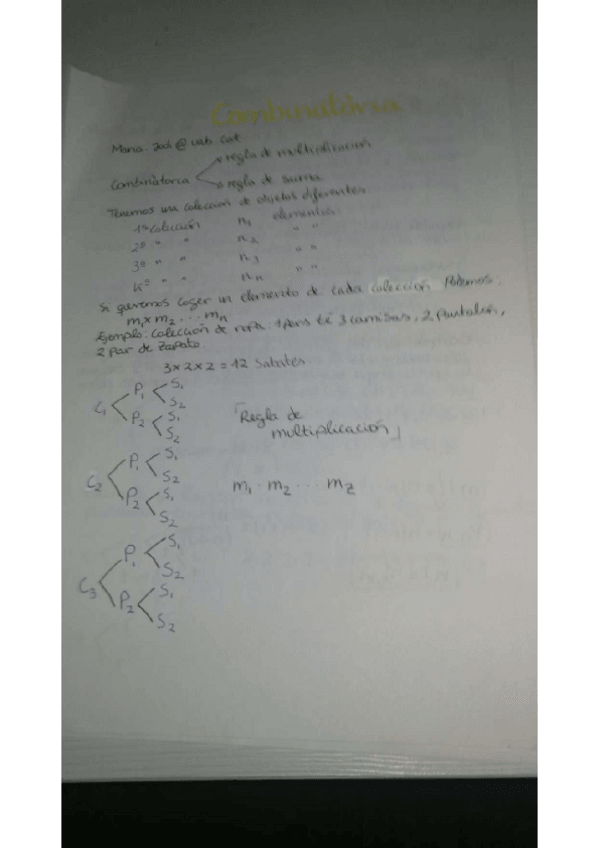 Combinatòria
Maria.Jodi@uab.cat
Combinatorca regla de multiplicacion
regla de suma
Tenemos una colección de objetos diferentes
1ª colección n₁ elementos
2º " " n₂ " "
3º " " n₃ " "
Kº " " nₙ " "
Si queremos coger un elemento de cada colección Podemos:
m₁ x m₂ ... mₙ
Ejemplo: Colección de ropa: 1 pers té 3 camisas, 2 pantalón,
2 par de Zapato.
3 x 2 x 2 = 12 Sabates
C₁ P₁ S₁
S₂
P₂ S₁
S₂
Regla de
multiplicación
C₂ P₁ S₁
S₂
P₂ S₁
S₂
m₁ · m₂ ... m₂
C₃ P₁ S₁
S₂
P₂ S₁
S₂